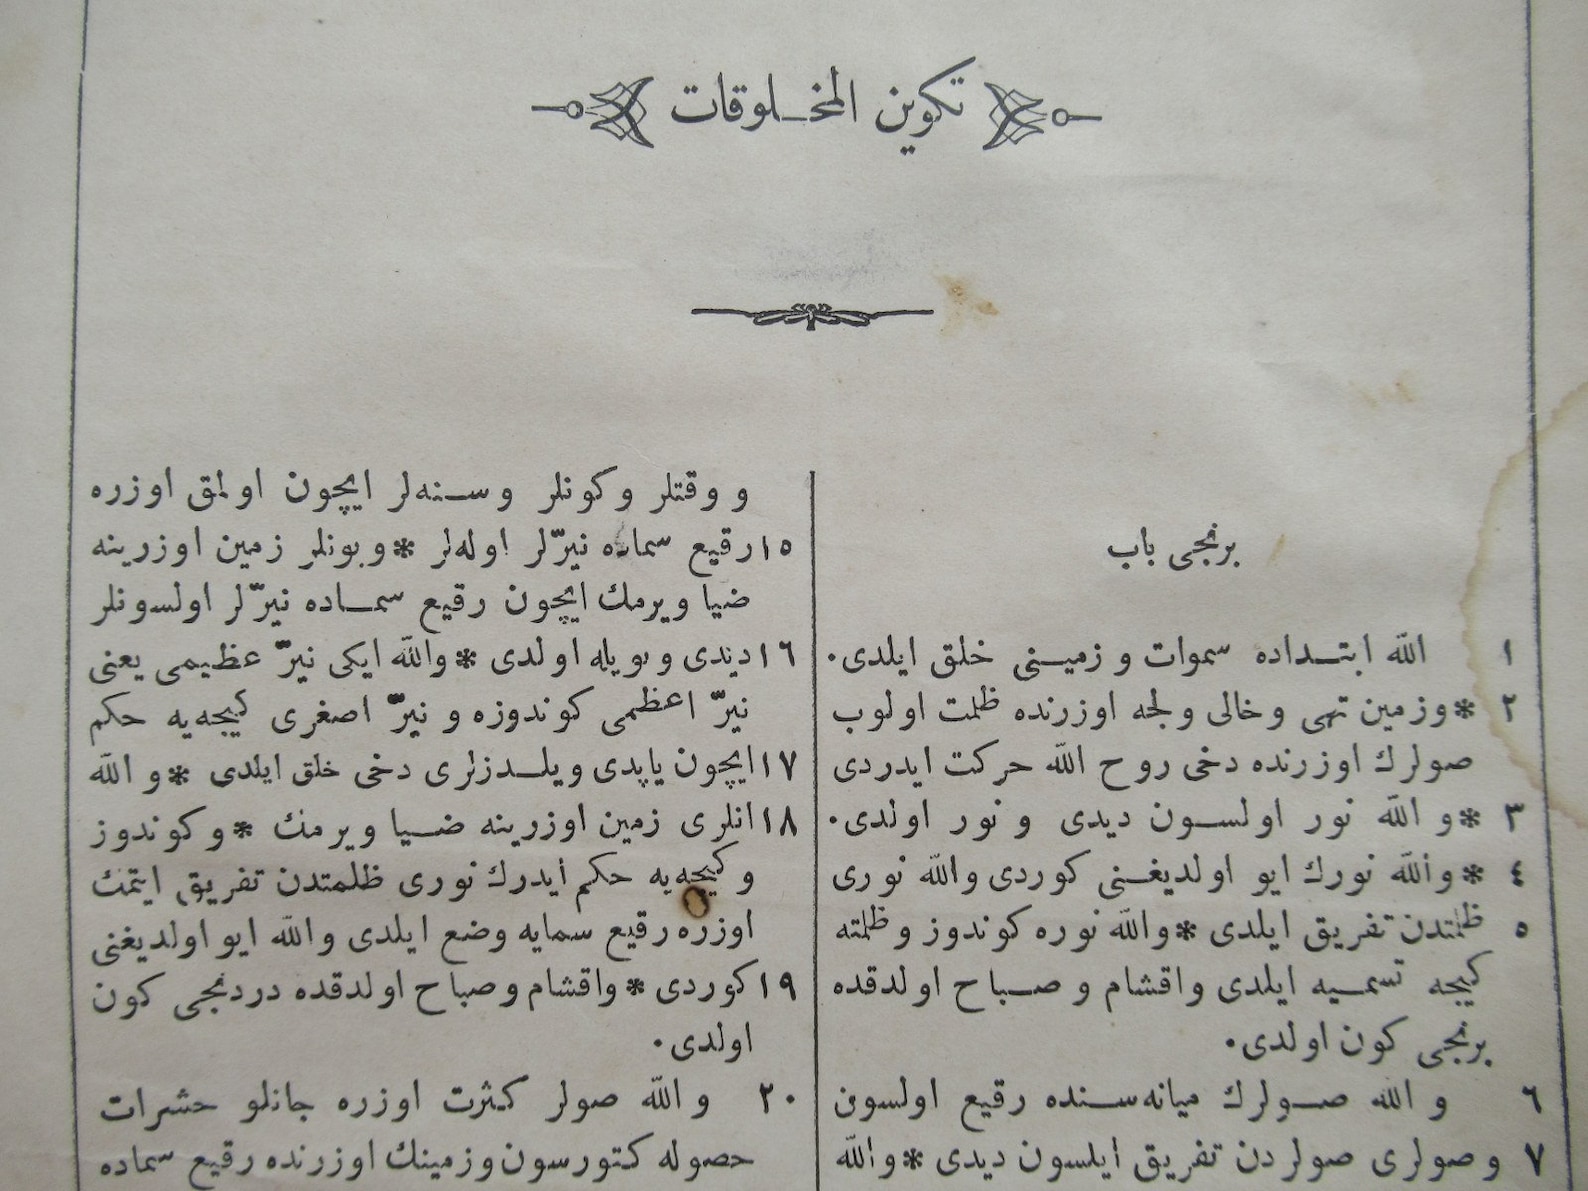 تكوين المخلوقات
برنجى باب
١ الله ابتداده سموات و زمينى خلق ايلدى.
٢ *وزمين تهى وخالى ولجه اوزرنده ظلمت اولوب
صولرك اوزرنده دخى روح الله حركت ايدردى
٣ *و الله نور اولسون ديدى و نور اولدى.
٤ *والله نورك ايو اولديغنى كوردى والله نورى
٥ ظلمتدن تفريق ايلدى *والله نوره كوندوز وظلمته
كيجه تسميه ايلدى واقشام و صباح اولدقده
برنجى كون اولدى.
٦ و الله صولرك ميانه‌سنده رقيع اولسون
٧ وصولرى صولردن تفريق ايلسون ديدى *والله
و وقتلر وكونلر وسنه‌لر ايچون اولمق اوزره
١٥ رقيع سماده نيرّلر اوله‌لر *وبونلر زمين اوزرينه
ضيا ويرمك ايچون رقيع سماده نيرّلر اولسونلر
١٦ ديدى وبويله اولدى *والله ايكى نيرّ عظيمى يعنى
نيرّ اعظمى كوندوزه و نيرّ اصغرى كيجه‌يه حكم
١٧ ايچون ياپدى ويلدزلرى دخى خلق ايلدى *و الله
١٨ انلرى زمين اوزرينه ضيا ويرمك *وكوندوز
و كيجه‌يه حكم ايدرك نورى ظلمتدن تفريق ايتمك
اوزره رقيع سمايه وضع ايلدى والله ايو اولديغنى
١٩ كوردى *واقشام وصباح اولدقده دردنجى كون
اولدى.
٢٠ و الله صولر كثرت اوزره جانلو حشرات
حصوله كتورسون وزمينك اوزرنده رقيع سماده